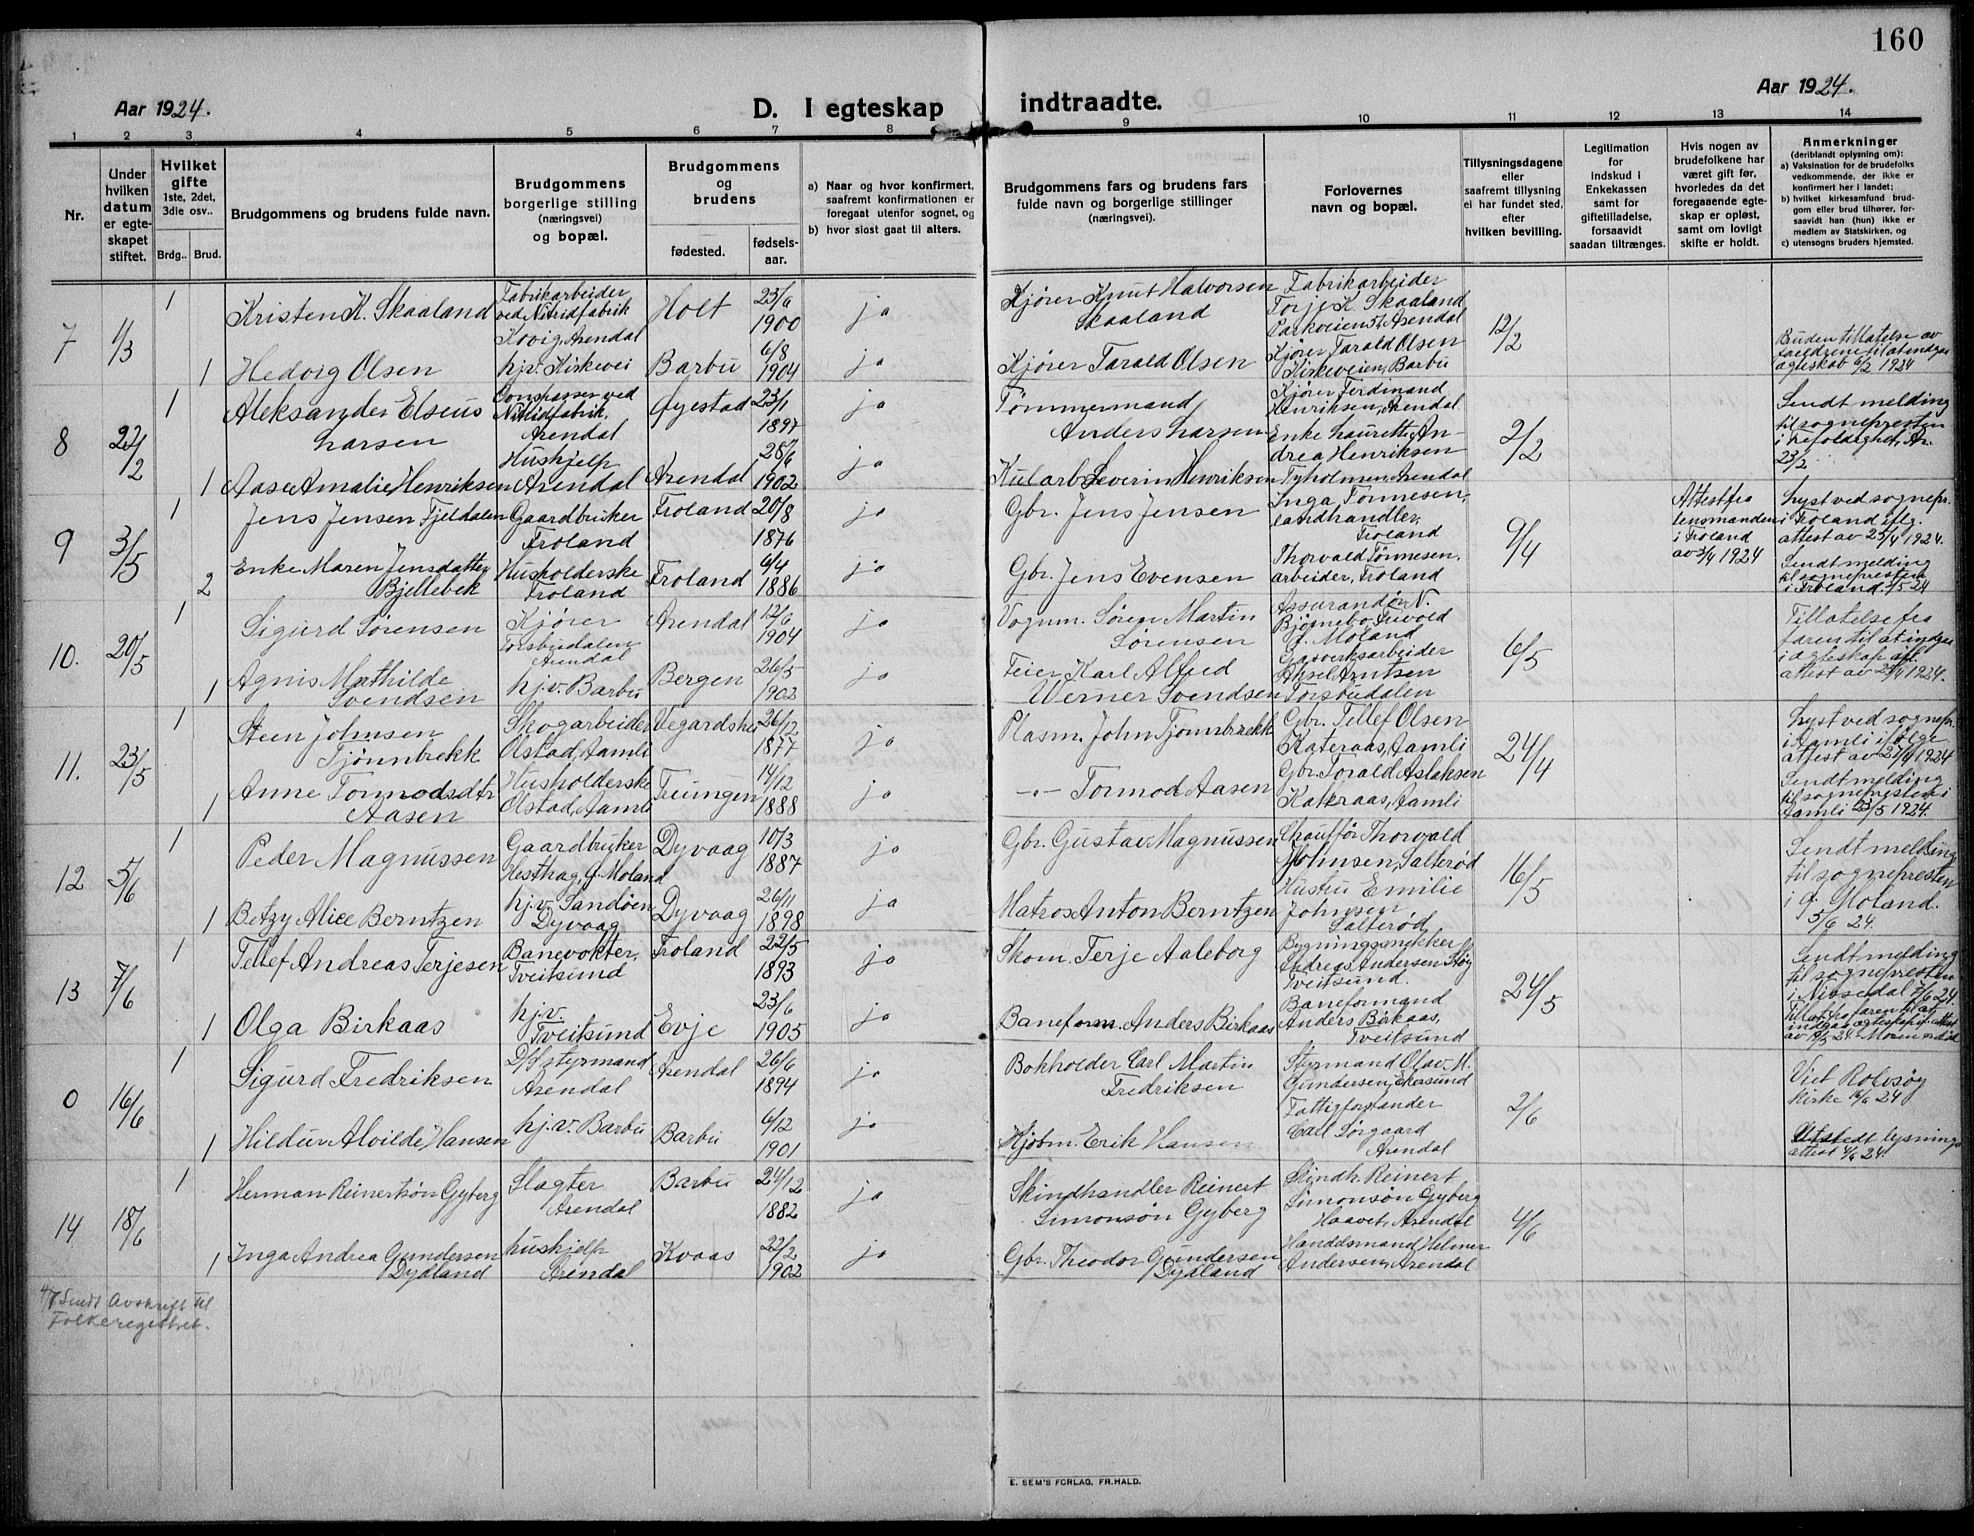 160
Aar 1924.
D. I egteskap indtraadte.
Aar 1924.
1 2 3 4 5 6 7 8 9 10 11 12 13 14
Nr.
Under hvilken datum er egteskapet stiftet.
Hvilket gifte 1ste, 2det, 3die osv..
Brdg.. Brud.
Brudgommens og brudens fulde navn.
Brudgommens borgerlige stilling (næringsvei) og bopæl.
Brudgommens og brudens
fødested.
fødsels-aar.
a) Naar og hvor konfirmert, saafremt konfirmationen er foregaat utenfor sognet, og
b) hvor sisst gaat til alters.
Brudgommens fars og brudens fars fulde navn og borgerlige stillinger (næringsvei).
Forlovernes navn og bopæl.
Tillysningsdagene eller saafremt tillysning ei har fundet sted, efter hvilken bevilling.
Legitimation for indskud i Enkekassen samt for giftetilladelse, forsaavidt saadan tiltrænges.
Hvis nogen av brudefolkene har været gift før, hvorledes da det foregaaende egteskap er opløst, samt om lovligt skifte er holdt.
Anmerkninger (deriblandt oplysning om):
a) Vaksination for de brudefolks vedkommende, der ikke er konfirmert her i landet;
b) hvilket kirkesamfund brudgom eller brud tilhører, forsaavidt han (hun) ikke er medlem av Statskirken, og
c) utensogns bruders hjemsted.
7 1/3 1 Kristen K. Skaaland Fabrikarbeider ved Nitridfabrik Arendal Holt 23/6 1900 ja Kjører Knut Halvorsen Skaaland Fabrikarbeider Torje K. Skaaland, Parkveien 51, Arendal 12/2
1 Hedvig Olsen hjv. Kirkevei Barbu 6/8 1904 ja Kjører Tarald Olsen Kjører Tarald Olsen Kirkeveien, Barbu 6/2 1924
8 22/2 1 Aleksander Elseus Larsen ved Nitridfabrik, Arendal Øyestad 23/1 1897 ja Tømmermand Anders Larsen Kjører Ferdinand Henriksen, Arendal 2/2 Sendt melding til sognepresten i Trefoldighed, Ar. 23/2
1 Aase Amalie Henriksen Hushjelp Arendal Arendal 28/6 1902 ja Kularb. Severin Henriksen Enke Laurette Andrea Henriksen Tyholmen, Arendal
9 3/5 1 Jens Jensen Fjeldalen Gaardbruker Froland Froland 20/8 1876 ja Gbr. Jens Jensen Inga Tønnesen, landhandler, Froland 9/4 Attest fra lensmanden i Froland av 3/4 1924 Lyst ved sognepr. i Froland iflg. attest av 23/4 1924.
2 Enke Maren Jensdatter Bjellebek Husholderske Froland Froland 6/4 1886 ja Gbr. Jens Evensen Thorvald Tønnesen, arbeider, Froland Sendt melding til sognepresten i Froland. 3/5 24
10. 20/5 1 Sigurd Sørensen Kjører Torsbudalen Arendal Arendal 12/6 1904 ja Vognm. Søren Martin Sørensen Assurandør N. Bjørnebo Ø. Moland 6/5 Tillatelse fra faren til at indgaa i ægteskap iflg. attest av 25/4 1924.
1 Agnis Mathilde Svendsen hj.v. Barbu Bergen 26/5 1902 ja Feier Karl Alfred Werner Svendsen Gasverksarbeider Aksel Arntsen Torsbudalen
11. 23/5 1 Steen Johnsen Tjønnbrekk Skogarbeider Olstad, Aamli Vegardshei 26/12 1877 ja Plasm. John Tjønnbrekk Gbr. Tellef Olsen Kateraas, Aamli 24/4 Lyst ved sognepr. i Aamli ifølge attest av 27/4 1924
1 Anne Tormodsdtr Aasen Husholderske Olstad, Aamli Treungen 14/12 1888 ja -"- Tormod Aasen Gbr. Torald Aslaksen Kateraas, Aamli Sendt melding til sognepresten i Aamli 23/5 1924.
12 5/6 1 Peder Magnussen Gaardbruker Hesthag, Ø. Moland Dyvaag 10/3 1887 ja Gbr. Gustav Magnussen Chauffør Thorvald Johnsen, Salterød 16/5 Sendt melding til sognepresten i Ø. Moland. 5/6 24.
1 Betzy Alice Berntzen hj.v. Sandøen Dyvaag Dyvaag 26/11 1898 ja Matros Anton Berntzen Hustru Emilie Johnsen Salterød
13 7/6 1 Tellef Andreas Terjesen Banevokter, Tveitsund Froland 22/5 1893 ja Skom. Terje Aaleborg Bygningssnekker Andreas Andersen Tveitsund. 24/5 Sendt melding til sognepresten i Nissedal 7/6 24.
1 Olga Birkaas hj.v. Tveitsund Evje 23/6 1905 ja Baneform. Anders Birkaas Baneformand Anders Birkaas, Tveitsund Tillat. fra faren til at indgaa ægteskap
0 16/6 1 Sigurd Fredriksen D/S styrmand Arendal Arendal 26/6 1894 ja Bokholder Carl Martin Fredriksen Styrmand Olav M. Gundersen, Ekersund 2/6 Viet kirke 16/6 24
1 Hildur Alvilde Hansen hj.v. Barbu Barbu 6/12 1901 ja Kjøbm. Erik Hansen Fattigforstander Carl Sørgaard Arendal Utstedt lysningsattest 4/6 24.
14 18/6 1 Herman Reinertsøn Gyberg Slagter Arendal Barbu 24/12 1882 ja Skindhandler Reinert Simonsøn Gyberg Skindh. Reinert Simonsøn Gyberg Haavet, Arendal 4/6
1 Inga Andrea Gundersen Dydland hushjelp Arendal Kvaas 22/2 1902 ja Gbr. Theodor Gundersen Dydland Handelsmand Helmer Andersen, Arendal
4/7 Sendt Avskrift til Folkeregistret.
E. SEM'S FORLAG, FR.HALD.